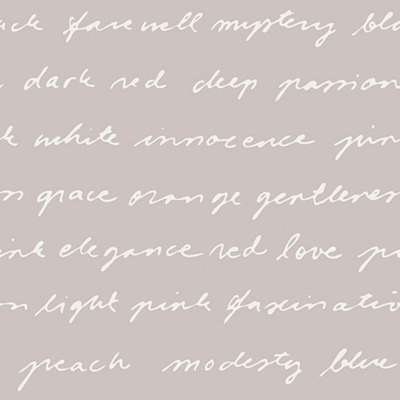 farewell mystery
dark red deep passion
white innocence
grace orange gentlenes
elegance red love
light pink fascinatio
peach modesty blue